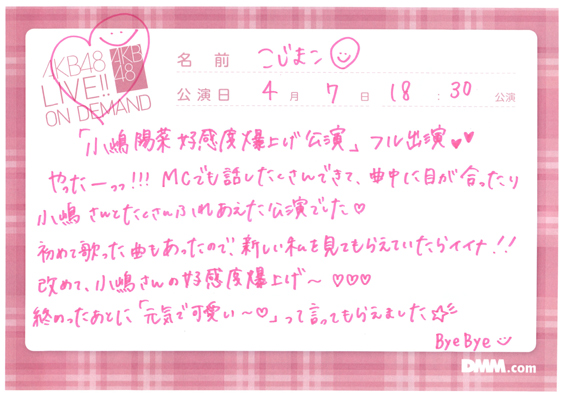 AKB48
LIVE!!
ON DEMAND
AKB
48
名前 こじまこ
公演日 4月7日 18:30公演
「小嶋陽菜 好感度爆上げ公演」フル出演♥♥
やったーっっ!!! MCでも話したくさんできて、曲中に目が合ったり
小嶋さんとたくさんふれあえた公演でした♡
初めて歌った曲もあったので、新しい私を見てもらえていたらイイナ!!
改めて、小嶋さんの好感度爆上げ〜 ♡♡♡
終わったあとに「元気で可愛い〜♡」って言ってもらえました☆彡
ByeBye
DMM.com